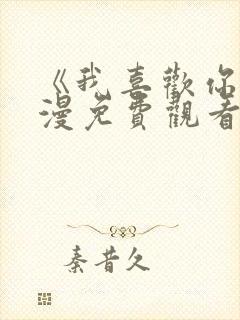 《我喜歡你
漫免費觀看
秦昔久